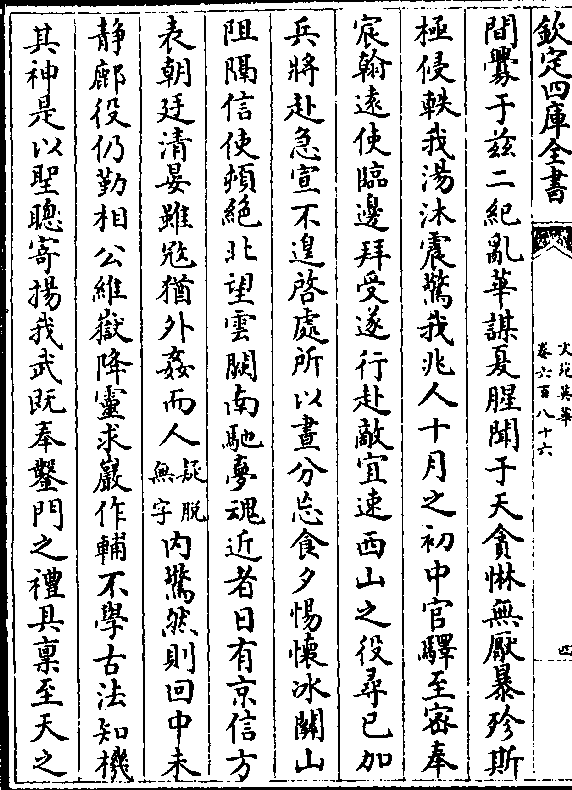 欽定四庫全書
文苑英華
卷六百八十六
四
間釁于兹二紀亂華謀夏腥聞于天貪惏無厭暴殄斯
極侵軼我湯沐震驚我兆人十月之初中官驛至宻奉
宸翰遠使臨邊拜受遂行赴敵宜速西山之役尋已加
兵將赴急宣不遑啓處所以晝分忘食夕惕懷冰關山
阻隔信使頻絶北望雲闕南馳夢魂近者日有京信方
表朝廷清晏雖宼猶外姦而人疑脱無字内驚然則回中未
静鄜役仍勤相公維嶽降靈求巖作輔不學古法知機
其神是以聖聰寄揚我武既奉鑿門之禮具禀至天之